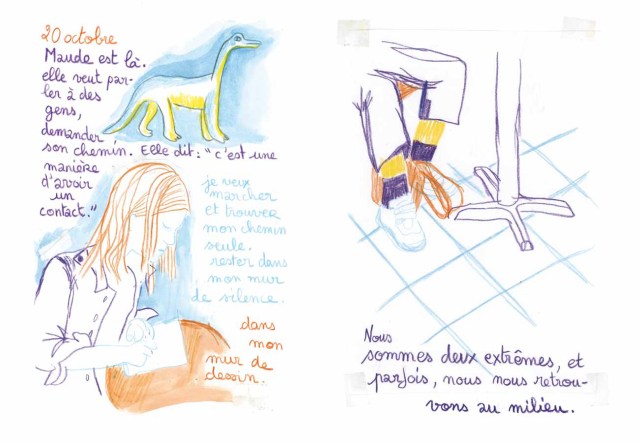 20 octobre
Maude est là.
elle veut par-
ler à des
gens,
demander
son chemin. Elle dit : "c'est une
manière
d'avoir
un
contact."
je veux
marcher
et trouver
mon chemin
seule.
rester dans
mon mur
de silence.
dans
mon
mur de
dessin.
Nous
sommes deux extrêmes, et
parfois, nous nous retrou-
vons au milieu.